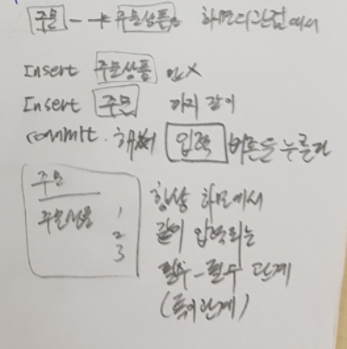 주문 --→ 주문상품 화면의 관점에서
Insert 주문상품 만 X
Insert 주문 까지 같이
commit. 해서 입력 버튼을 누를때
주문
주문상품 1
2
3
항상 화면에서
같이 입력되는
필수-필수 단계
(특이관계)